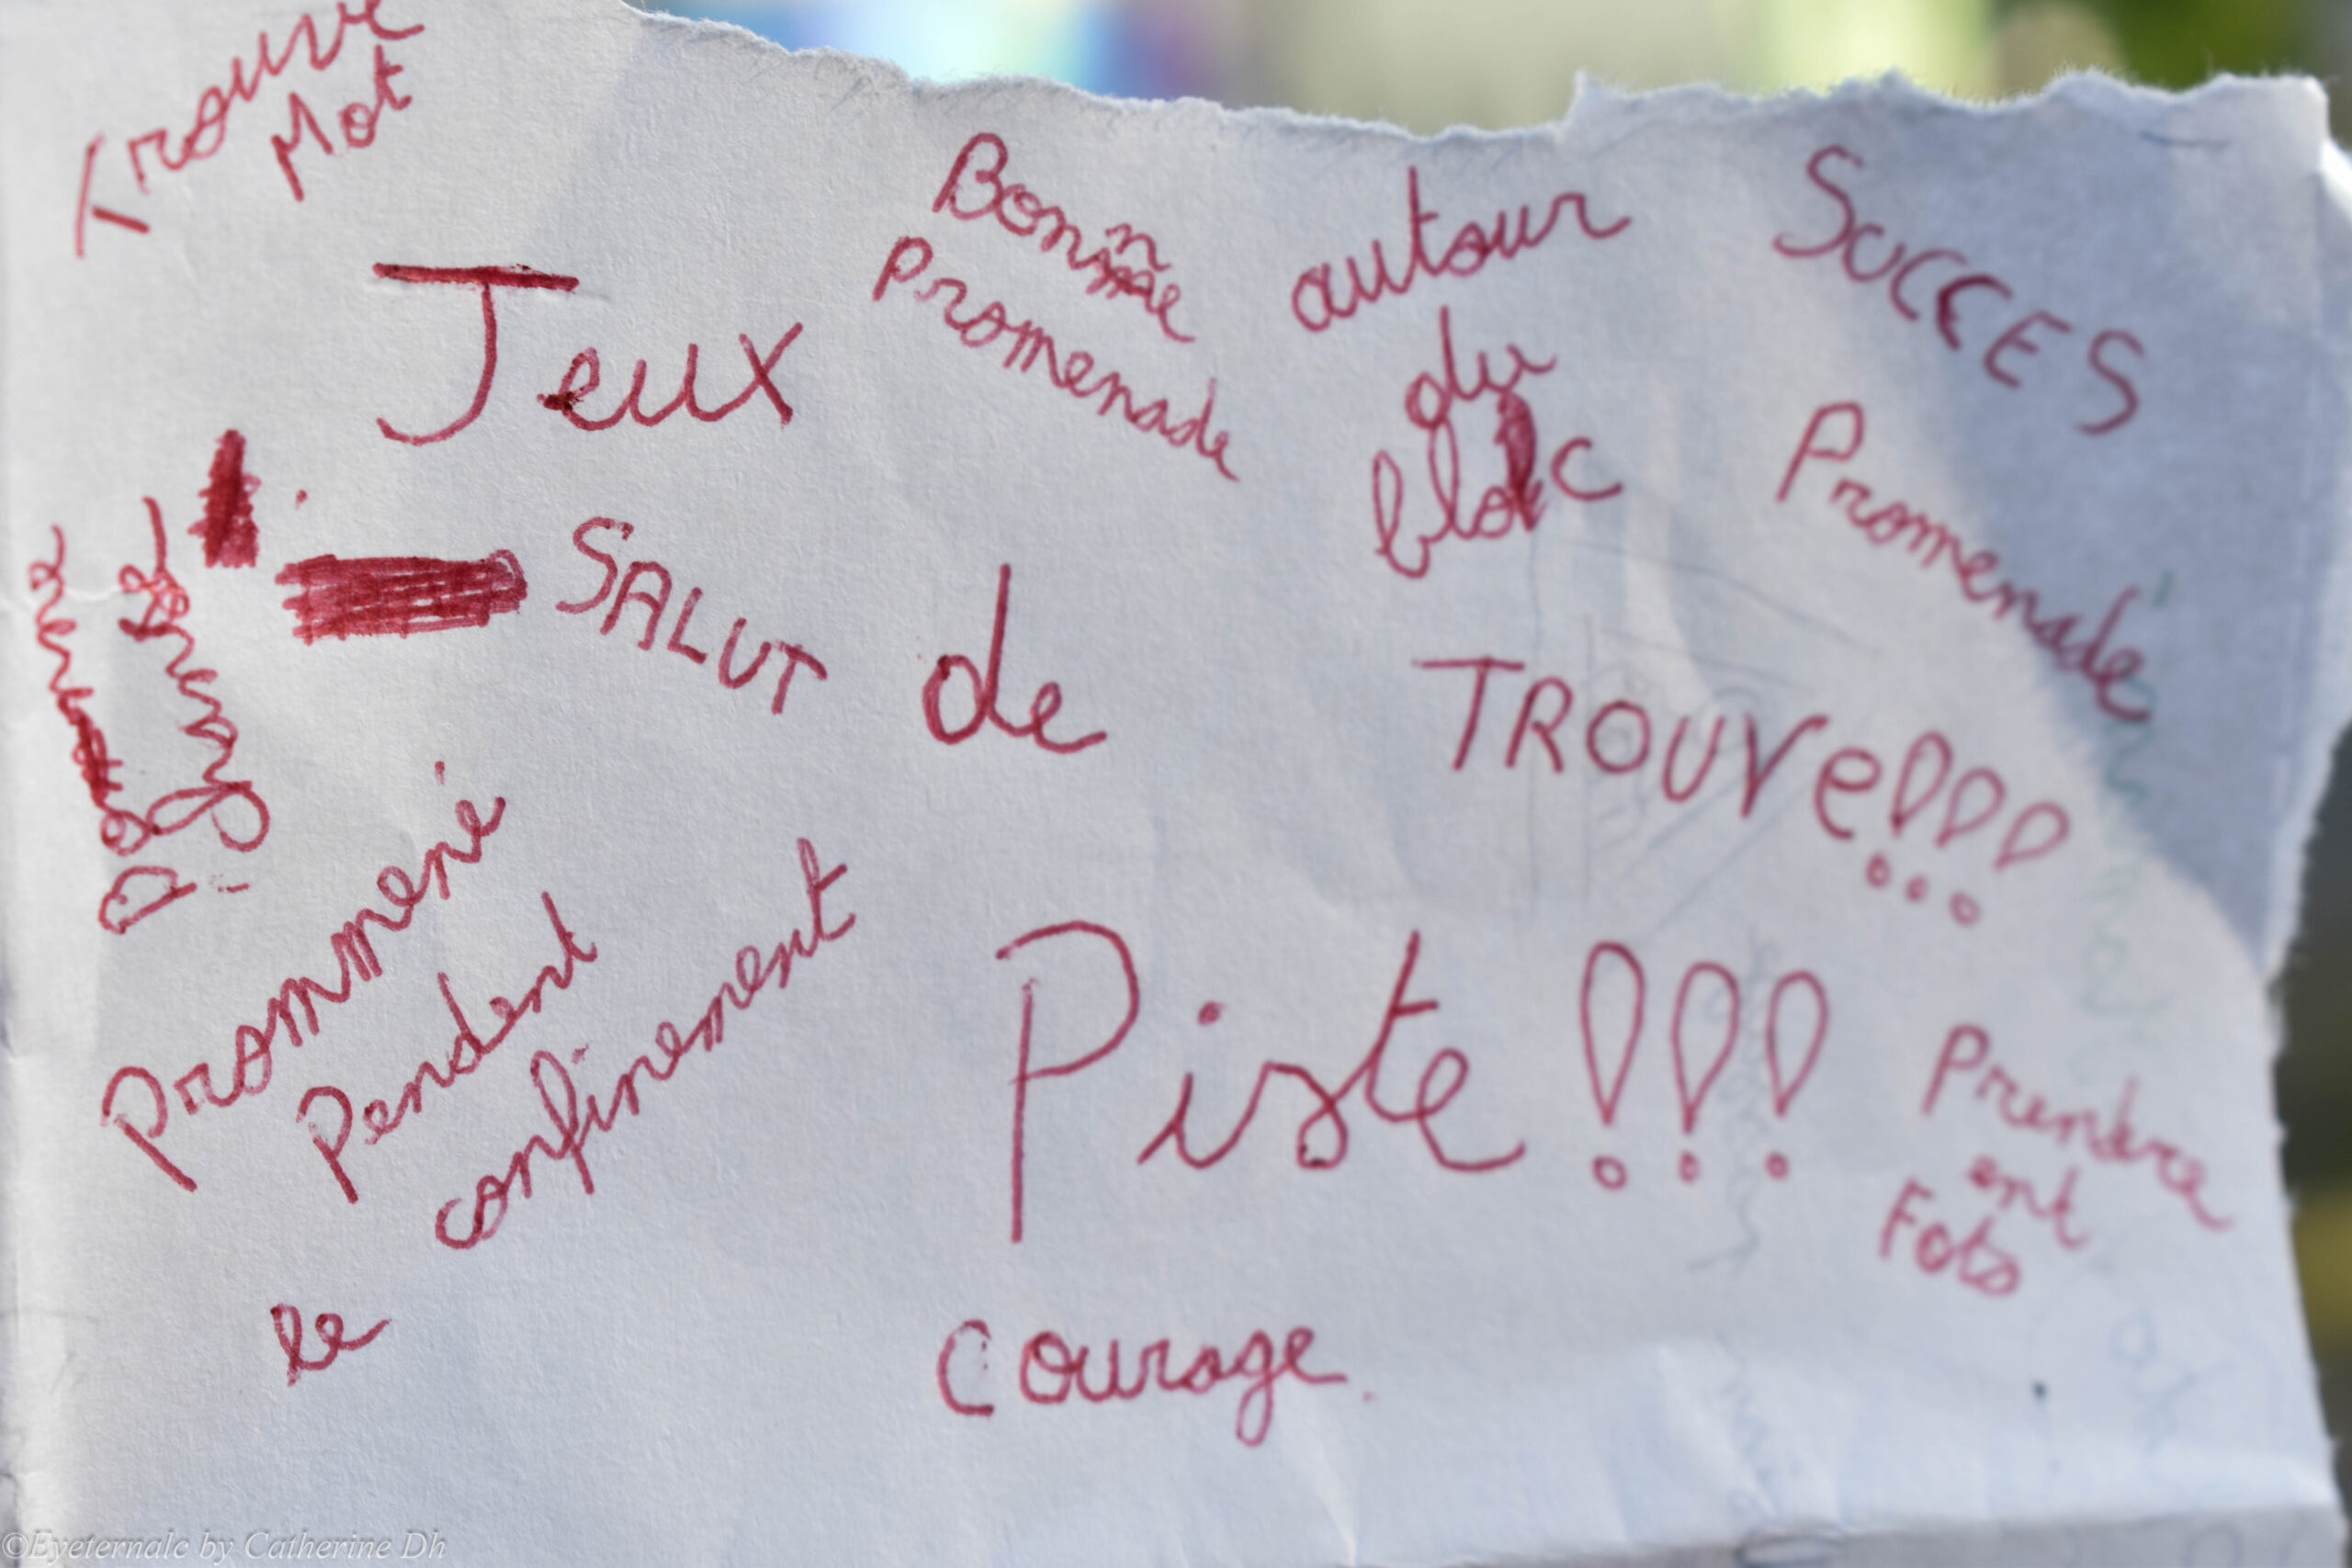 Trouve
Mot
Jeux
Bonne
Promenade
autour
du
bloc
SUCCES
Promenade
SALUT
de
TROUVe!!!
Prommené
Pendent
confinement
le
Piste!!!
Prendre
ent
Fots
Courage
©Eyeternalc by Catherine Dh